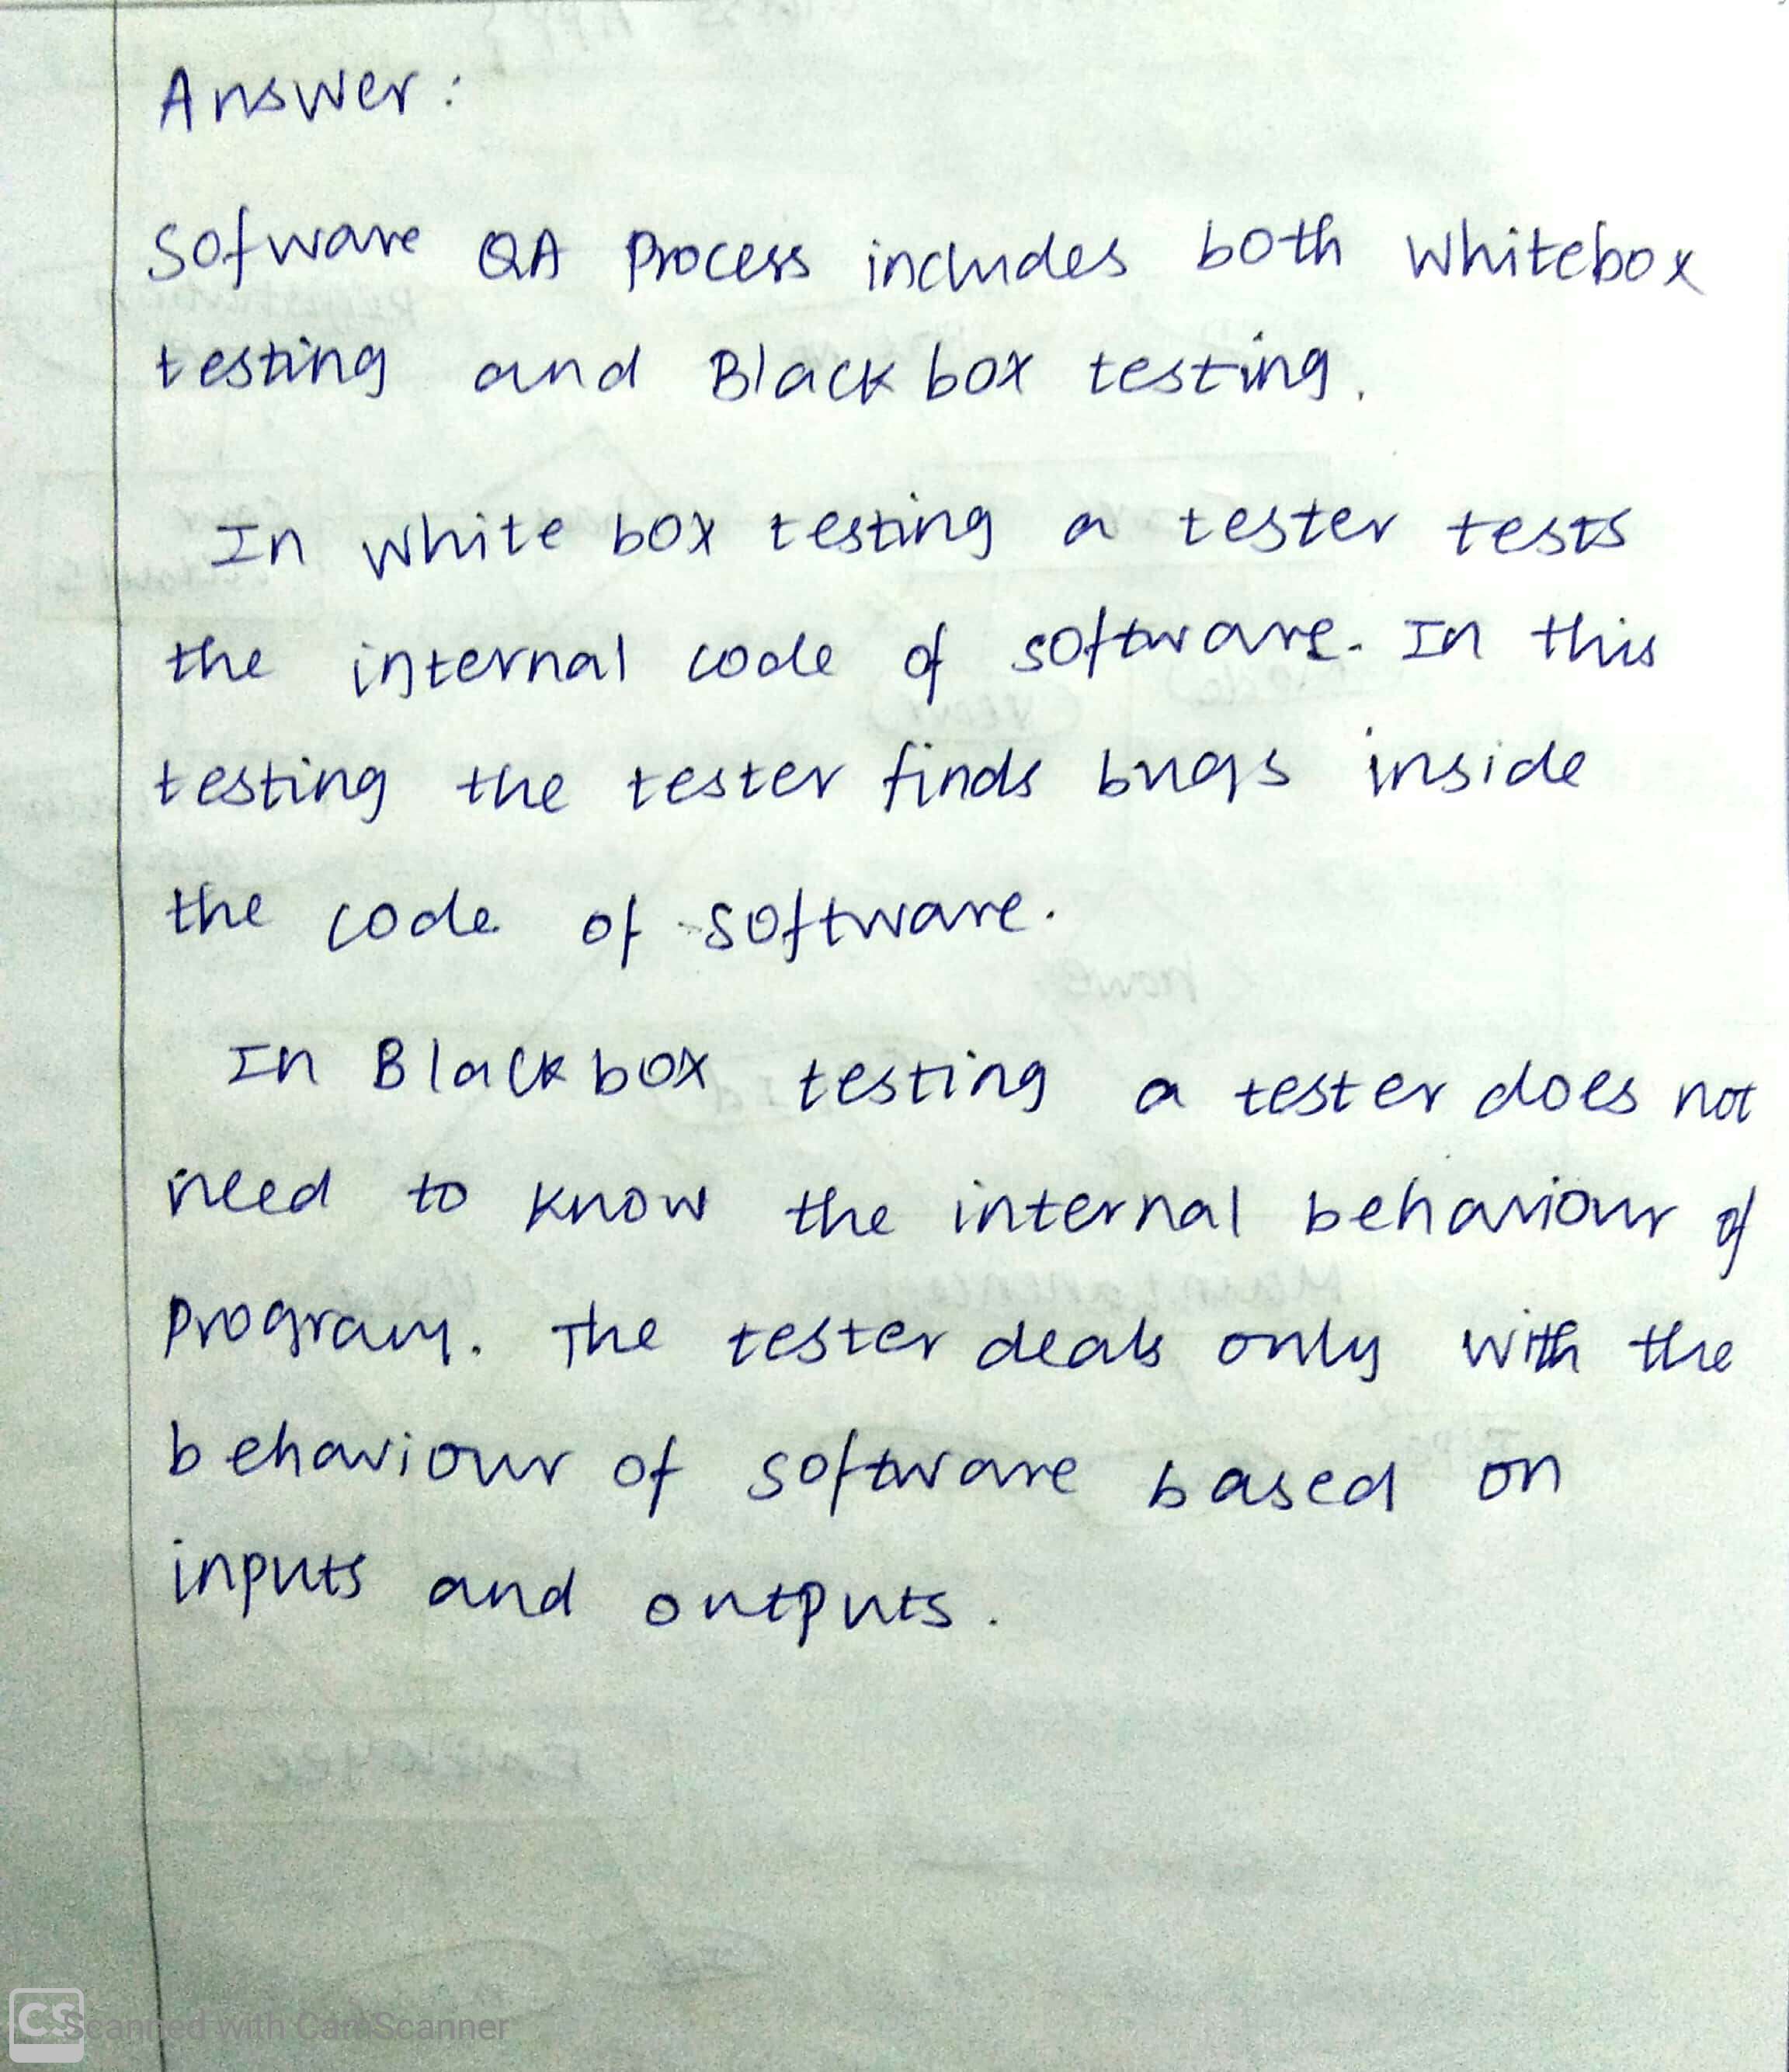 Answer:
Sofware QA Process includes both Whitebox
testing and Black box testing.
In White box testing a tester tests
the internal code of software. In this
testing the tester finds bugs inside
the code of software.
In Black box testing a tester does not
need to know the internal behaviour of
program. The tester deals only with the
behaviour of software based on
inputs and outputs.
CS Scanned with CamScanner